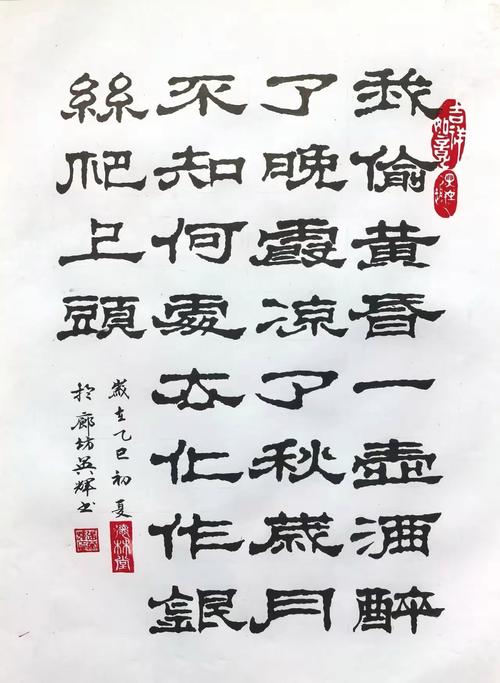 我偷黄昏一壺酒醉
了晚霞涼了秋歲月
不知何處去化作銀
絲爬上頭
歲在乙巳初夏
於廊坊英輝书
吉祥如意